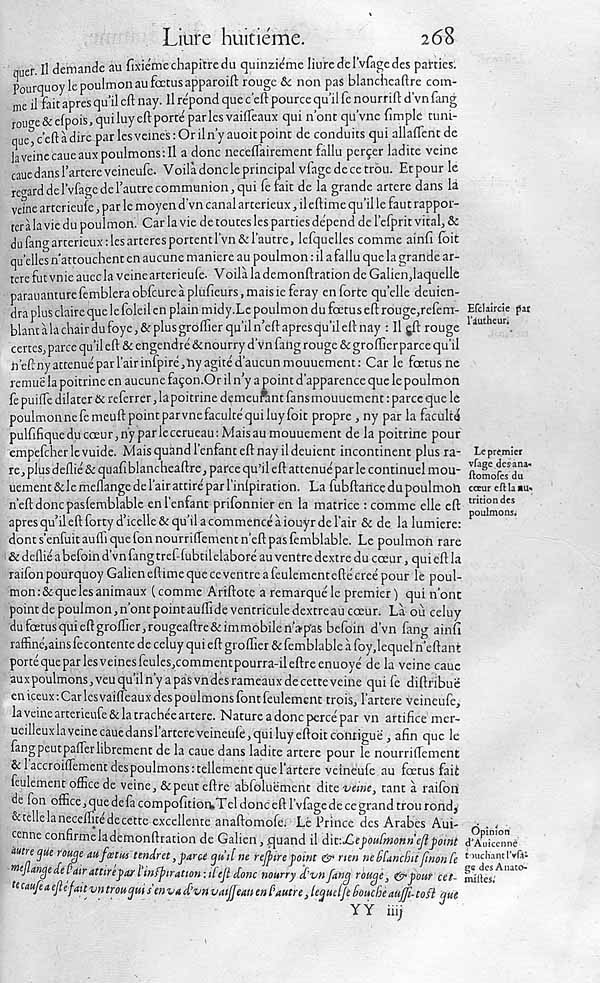 Liure huitiéme. 268
quer. Il demande au sixiéme chapitre du quinziéme liure de l'vsage des parties.
Pourquoy le poulmon au fœtus apparoist rouge & non pas blancheastre com-
me il fait apres qu'il est nay. Il répond que c'est pource qu'il se nourrist d'vn sang
rouge & espois, qui luy est porté par les vaisseaux qui n'ont qu'vne simple tuni-
que, c'est à dire par les veines: Or il n'y auoit point de conduits qui allassent de
la veine caue aux poulmons: Il a donc necessairement fallu perçer ladite veine
caue dans l'artere veineuse. Voilà donc le principal vsage de ce trou. Et pour le
regard de l'vsage de l'autre communion, qui se fait de la grande artere dans la
veine arterieuse, par le moyen d'vn canal arterieux, il estime qu'il le faut rappor-
ter à la vie du poulmon. Car la vie de toutes les parties dépend de l'esprit vital, &
du sang arterieux: les arteres portent l'vn & l'autre, lesquelles comme ainsi soit
qu'elles n'attouchent en aucune maniere au poulmon: il a fallu que la grande ar-
tere fut vnie auec la veine arterieuse. Voilà la demonstration de Galien, laquelle
parauanture semblera obscure à plusieurs, mais ie feray en sorte qu'elle deuien-
dra plus claire que le soleil en plain midy. Le poulmon du fœtus est rouge, resem-
blant à la chair du foye, & plus grossier qu'il n'est apres qu'il est nay: Il est rouge
certes, parce qu'il est & engendré & nourry d'vn sang rouge & grossier parce qu'il
n'est ny attenué par l'air inspiré, ny agité d'aucun mouuement: Car le fœtus ne
remuë la poitrine en aucune façon. Or il n'y a point d'apparence que le poulmon
se puisse dilater & reserrer, la poitrine demeurant sans mouuement: parce que le
poulmon ne se meust point par vne faculté qui luy soit propre, ny par la faculté
pulsifique du cœur, ny par le cerueau: Mais au mouuement de la poitrine pour
empescher le vuide. Mais quand l'enfant est nay il deuient incontinent plus ra-
re, plus deslié & quasi blancheastre, parce qu'il est attenué par le continuel mou-
uement & le meslange de l'air attiré par l'inspiration. La substance du poulmon
n'est donc pas semblable en l'enfant prisonnier en la matrice: comme elle est
apres qu'il est sorty d'icelle & qu'il a commencé à iouyr de l'air & de la lumiere:
dont s'ensuit aussi que son nourrissement n'est pas semblable. Le poulmon rare
& deslié a besoin d'vn sang tres-subtil elaboré au ventre dextre du cœur, qui est la
raison pourquoy Galien estime que ce ventre a seulement esté creé pour le poul-
mon: & que les animaux (comme Aristote a remarqué le premier) qui n'ont
point de poulmon, n'ont point aussi de ventricule dextre au cœur. Là où celuy
du fœtus qui est grossier, rougeastre & immobile n'a pas besoin d'vn sang ainsi
raffiné, ains se contente de celuy qui est grossier & semblable à soy, lequel n'estant
porté que par les veines seules, comment pourra-il estre enuoyé de la veine caue
aux poulmons, veu qu'il n'y a pas vn des rameaux de cette veine qui se distribuë
en iceux: Car les vaisseaux des poulmons sont seulement trois, l'artere veineuse,
la veine arterieuse & la trachée artere. Nature a donc percé par vn artifice mer-
ueilleux la veine caue dans l'artere veineuse, qui luy estoit contiguë, afin que le
sang peut passer librement de la caue dans ladite artere pour le nourrissement
& l'accroissement des poulmons: tellement que l'artere veineuse au fœtus fait
seulement office de veine, & peut estre absoluëment dite veine, tant à raison
de son office, que de sa composition. Tel donc est l'vsage de ce grand trou rond,
& telle la necessité de cette excellente anastomose. Le Prince des Arabes Aui-
cenne confirme la demonstration de Galien, quand il dit: Le poulmon n'est point
autre que rouge au fœtus tendret, parce qu'il ne respire point & rien ne blanchit sinon le
meslange de l'air attiré par l'inspiration: il est donc nourry d'vn sang rouge, & pour cet-
te cause a esté fait vn trou qui s'en va d'vn vaisseau en l'autre, lequel se bouche aussi-tost que
YY iiij
Esclaircie par
l'autheur.
Le premier
vsage des ana-
stomoses du
cœur est la nu-
trition des
poulmons.
Opinion
d'Auicenne
touchant l'vsa-
ge des Anato-
mistes.